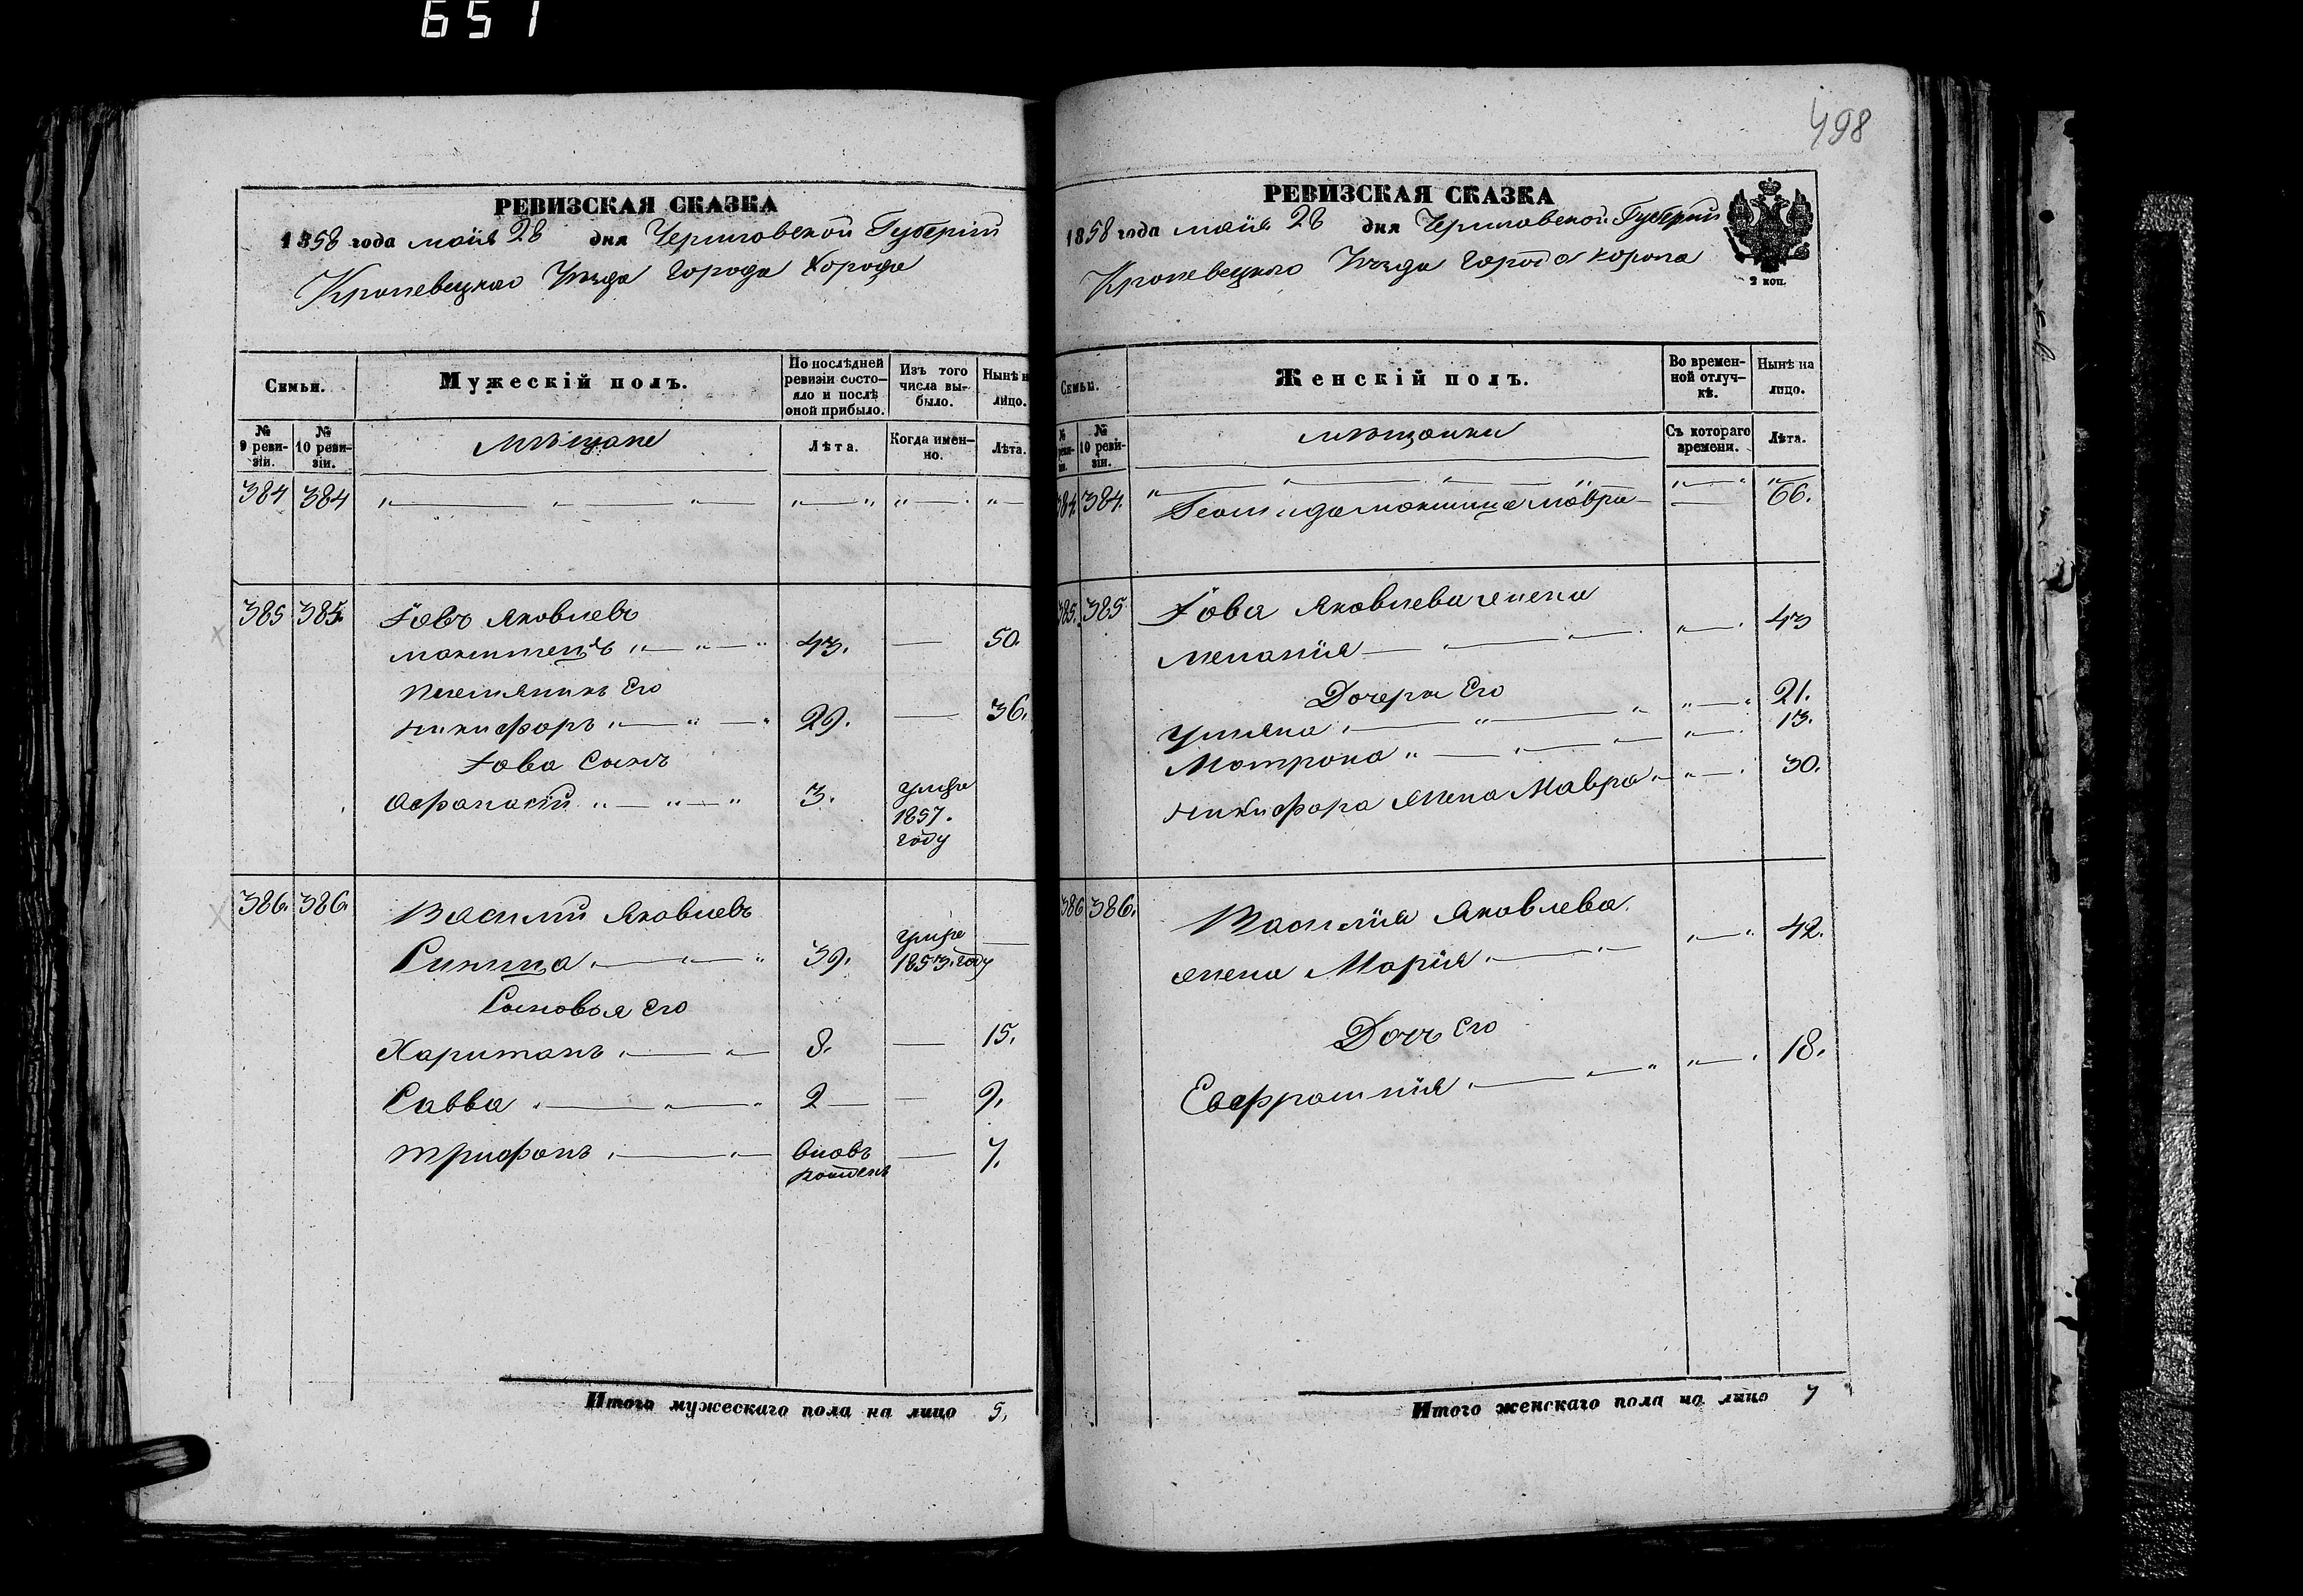 651
РЕВИЗСКАЯ СКАЗКА
1858 года маія 28 дня Черниговской Губерніи
Кролевецкаго Уѣзда Города Коропа
Семьи.
Мужескій полъ.
По послѣдней ревизіи состояло и послѣ оной прибыло.
Изъ того числа выбыло.
Нынѣ н
лицо.
№ 9 ревизіи.
№ 10 ревизіи.
мѣщане
Лѣта.
Когда именно.
Лѣта.
384 384 " — " — " "—" "—. "—
385 385. Іовъ Яковлевъ
"—"—" 43. — 50.
племяникъ Его
никифоръ "—"—" 29. — 36.
Іова Сынъ
Афанасій "—"—" 3. умре
1857.
году
386. 386. Василий Яковлевъ
Синица "—"—" 39. умре —
1853. году
Сыновья Его
Харитонъ "—"— 8. — 15.
Савва "—"—" 2 — — 9.
трифонъ "—"— вновь — 7.
рожденъ
Итого мужескаго пола на лицо 5.
498
РЕВИЗСКАЯ СКАЗКА
1858 года маія 28 дня Черниговской Губерніи
Кролевецкаго Уѣзда города Коропа
2 коп.
Семьи.
Женскій полъ.
Во временной отлучкѣ.
Нынѣ на лицо.
№ 10 ревизіи.
мѣщанки
Съ котораго времени.
Лѣта.
84. 384. Мавра — — 66.
385. 385 Іова Яковлева жена
Меланія — "— "—. "—. 43
Дочери Его
Ульяна "—"—" "—" 21.
Матрона "—"—"— "—. 13.
никифора жена Мавра "— "—. 30.
386 386. Василія Яковлева
жена Марія "—"— "—" 42.
Дочь Его
Евфросинія "—"—" "—. 18.
Итого женскаго пола на лицо 7